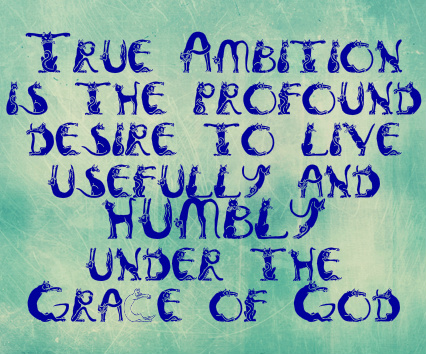 True Ambition
is the profound
desire to live
usefully and
humbly
under the
Grace of God